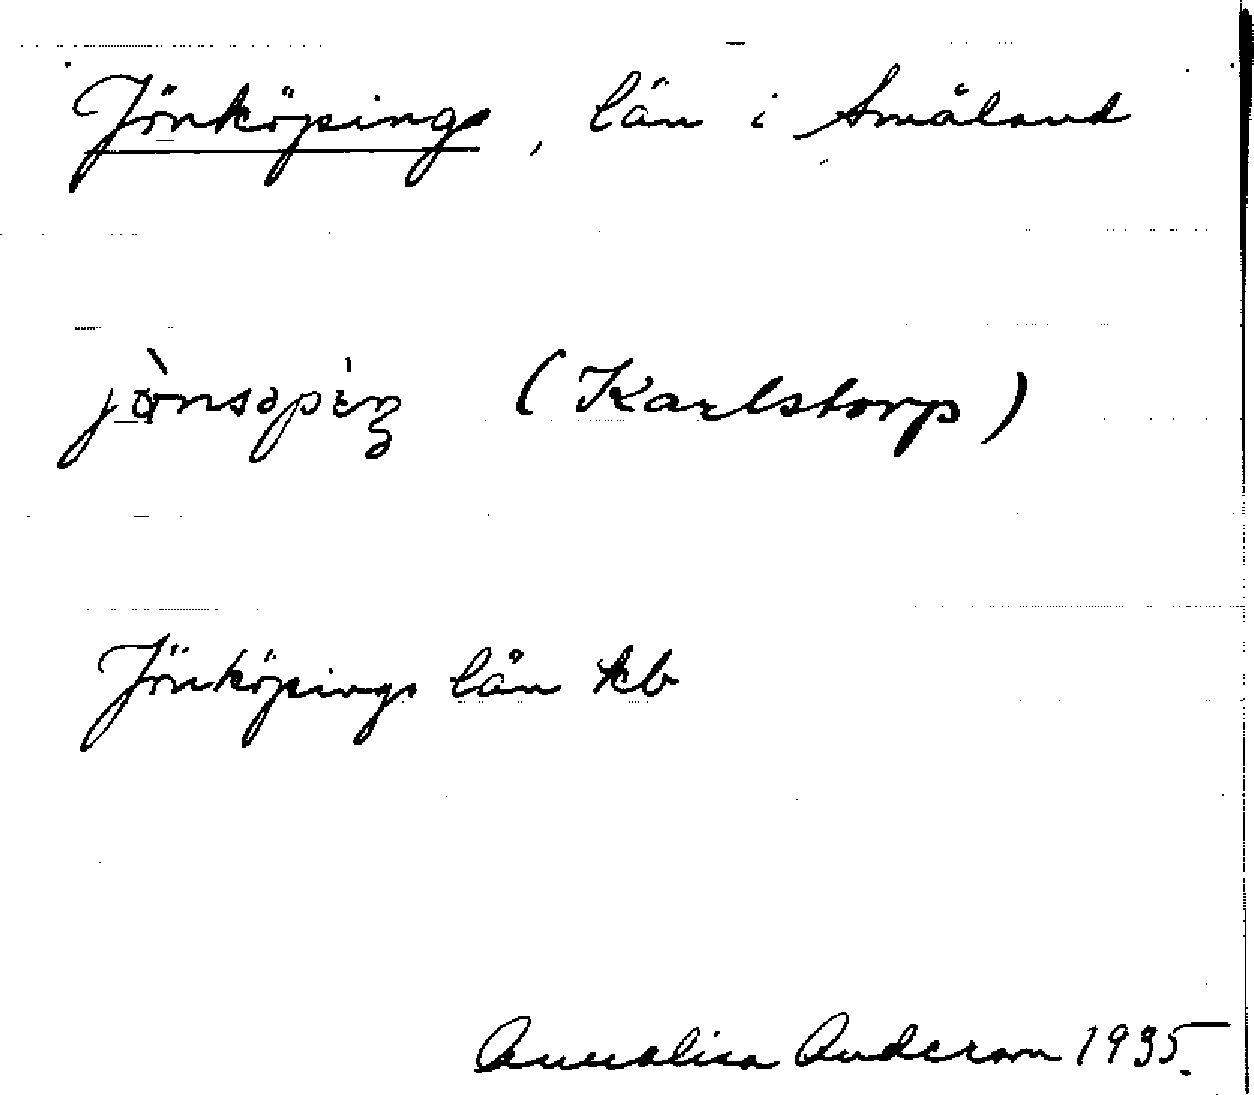 Jönköpings, län i Småland
(Karlstorp)
Jönköpings län kb
Annalisa Anderson 1935.